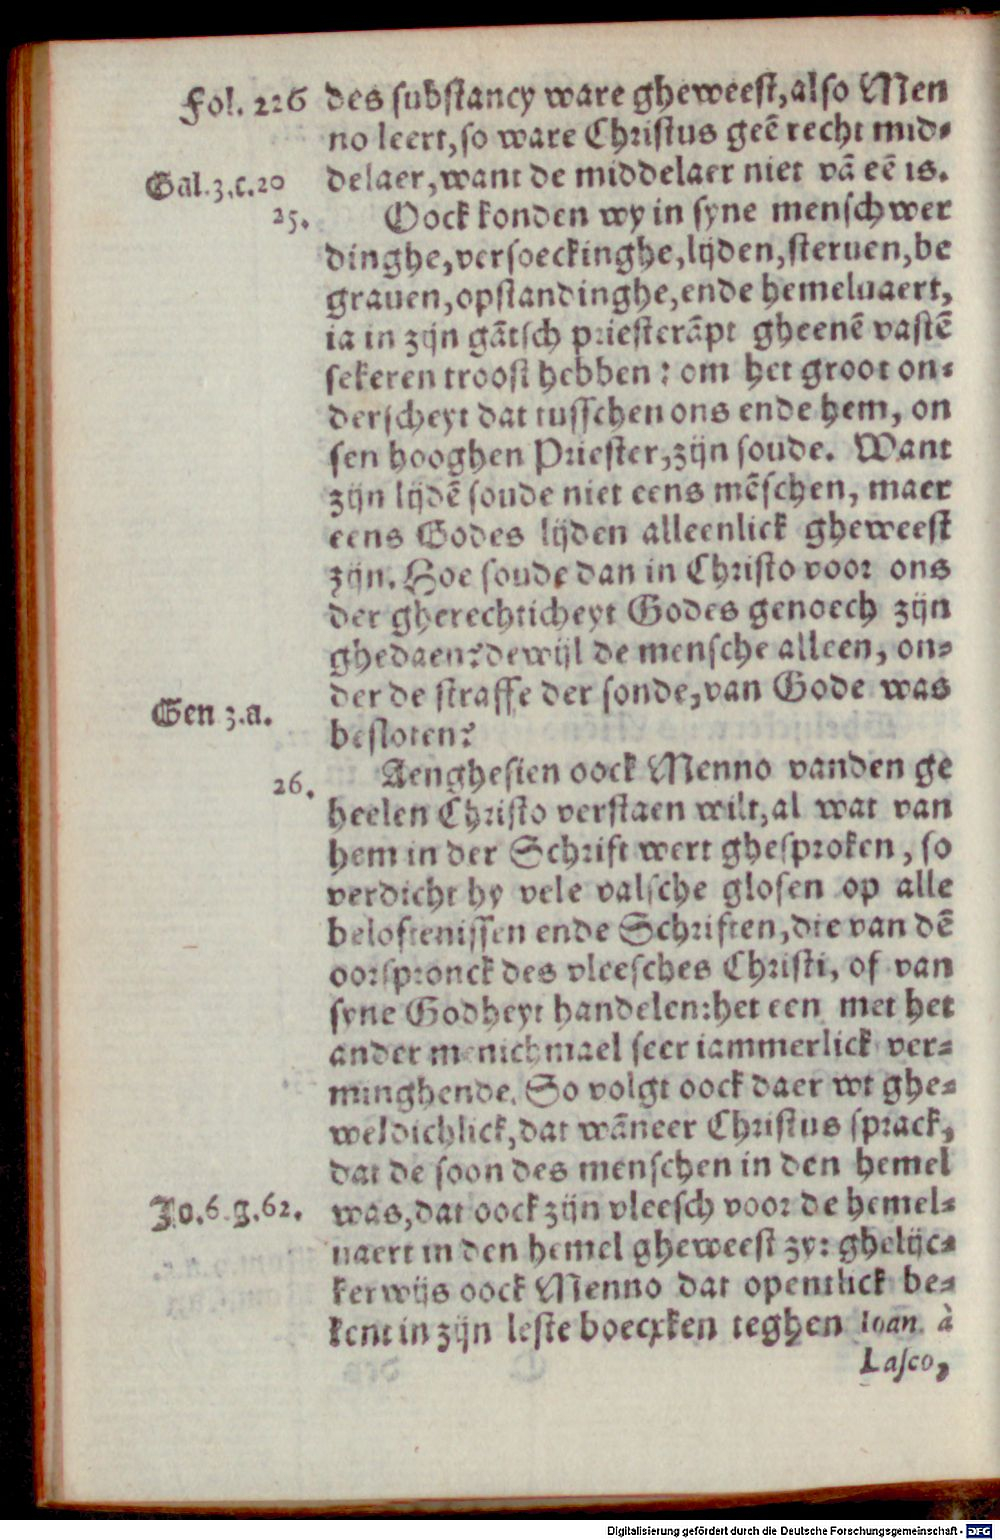 Fol. 226 des substancy ware gheweest, also Men
no leert, so ware Christus geē recht mid-
Gal. 3. c. 20 delaer, want de middelaer niet vā eē is.
25. Oock konden wy in syne mensch wer
dinghe, versoeckinghe, lijden, steruen, be
grauen, opstandinghe, ende hemeluaert,
ia in zijn gātsch priesterāpt gheenē vastē
sekeren troost hebben: om het groot on-
derscheyt dat tusschen ons ende hem, on
sen hooghen Priester, zijn soude. Want
zijn lijdē soude niet eens mēschen, maer
eens Godes lijden alleenlick gheweest
zijn. Hoe soude dan in Christo voor ons
der gherechticheyt Godes genoech zijn
ghedaen? dewijl de mensche alleen, on-
der de straffe der sonde, van Gode was
Gen 3. a. besloten?
26. Aenghesien oock Menno vanden ge
heelen Christo verstaen wilt, al wat van
hem in der Schrift wert ghesproken, so
verdicht hy vele valsche glosen op alle
beloftenissen ende Schriften, die van dē
oorspronck des vleesches Christi, of van
syne Godheyt handelen: het een met het
ander menichmael seer iammerlick ver-
minghende. So volgt oock daer wt ghe-
weldichlick, dat wāneer Christus sprack,
dat de soon des menschen in den hemel
Jo. 6. g. 62. was, dat oock zijn vleesch voor de hemel-
uaert in den hemel gheweest zy: ghelijc-
kerwijs oock Menno dat opentlick be-
kent in zijn leste boecxken teghen Ioan. à
Lasco,
Digitalisierung gefördert durch die Deutsche Forschungsgemeinschaft - DFG